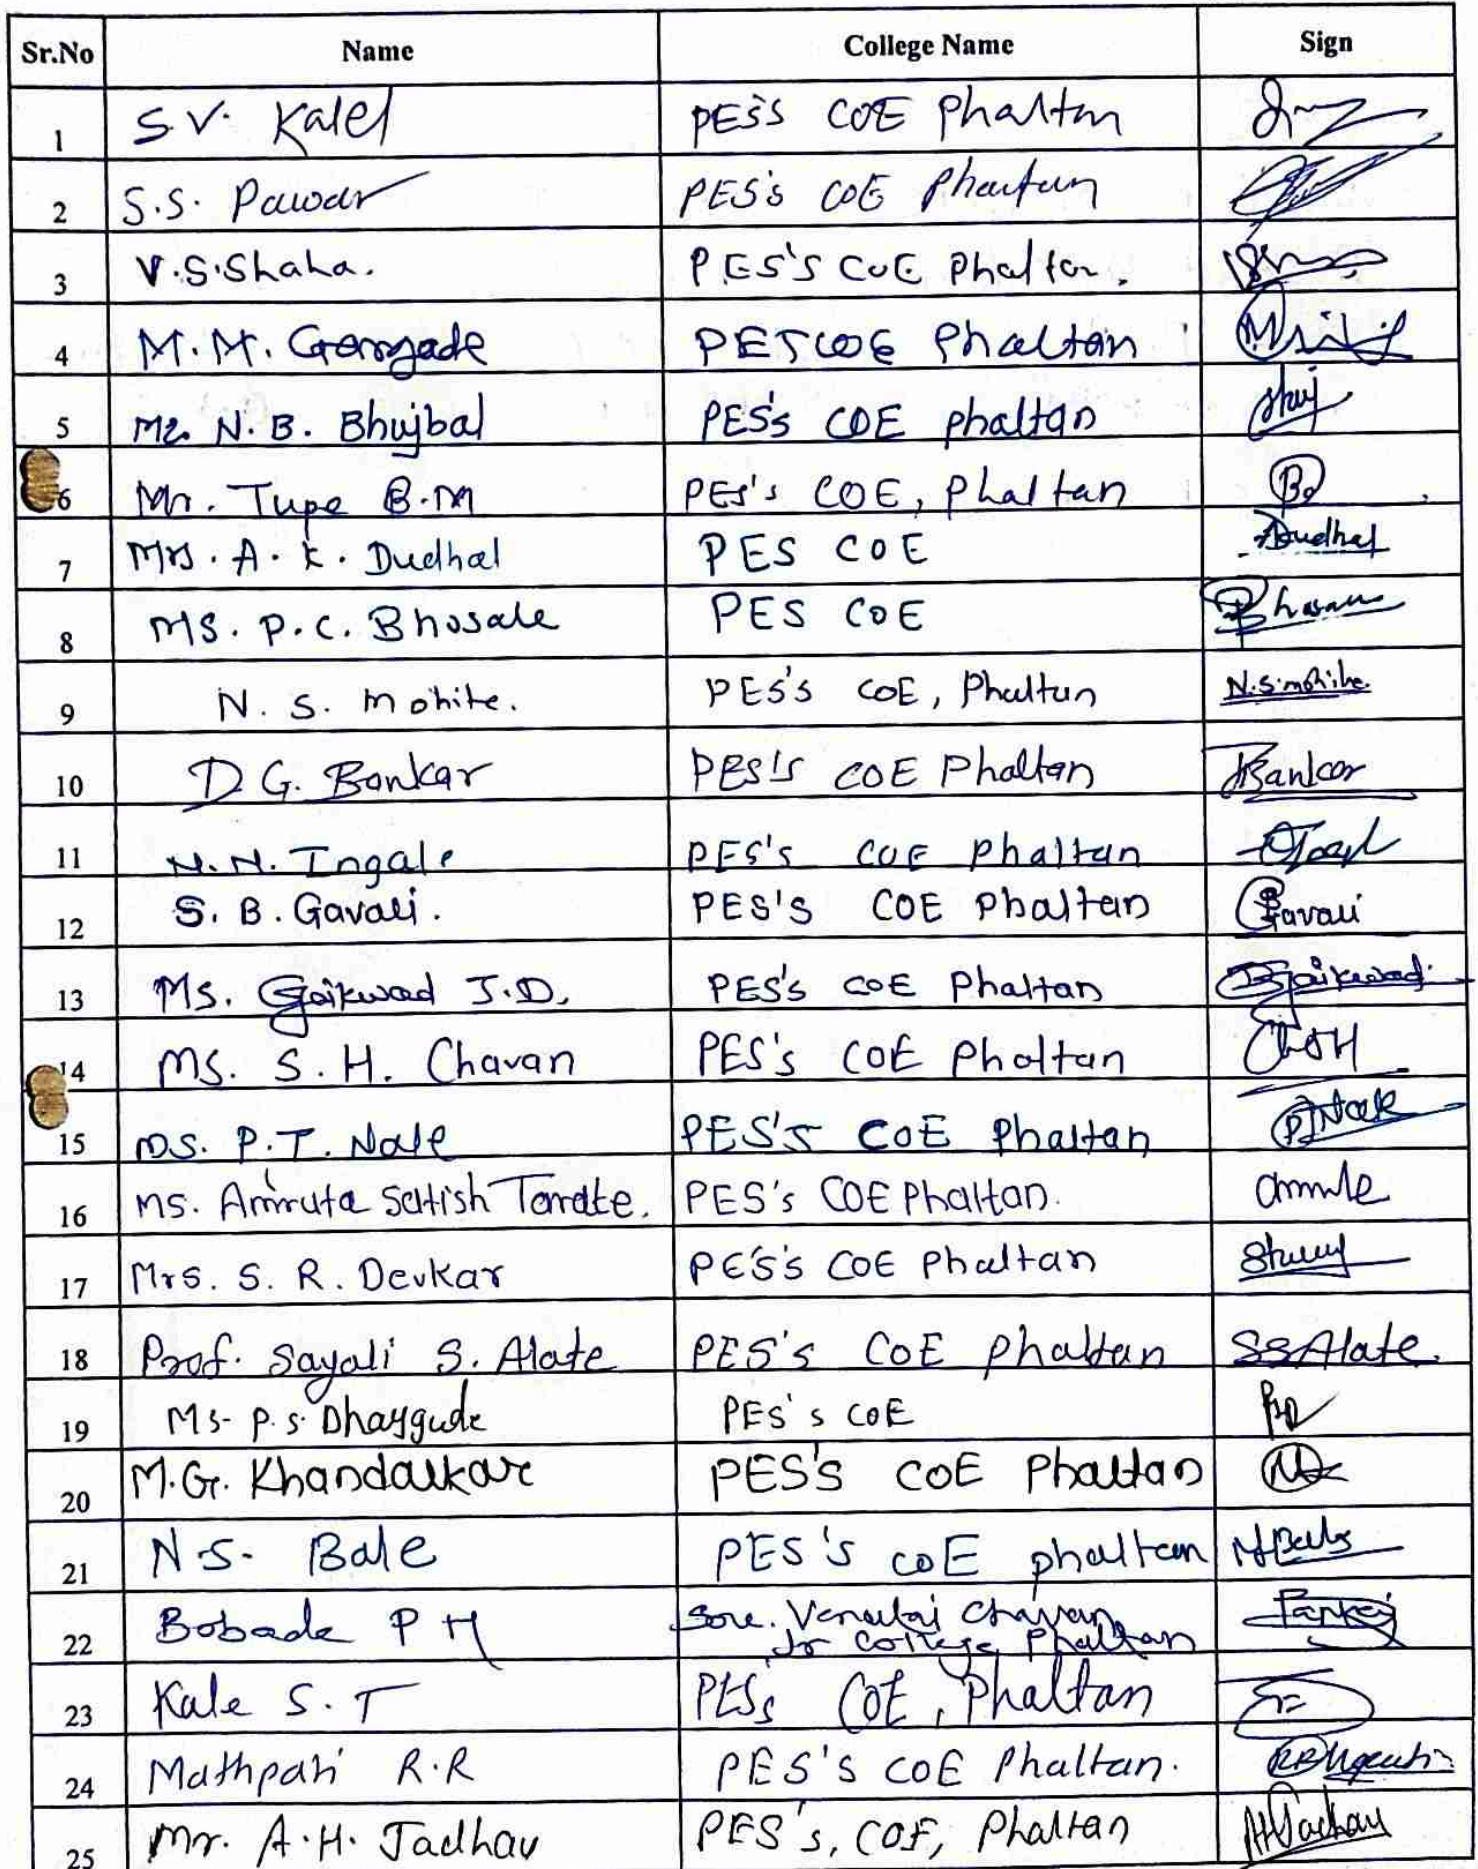 Sr.No Name College Name Sign
1 S.V. Kalel PES's COE Phaltan
2 S.S. Pawar PES's COE Phaltan
3 V.S.Shaha. PES's COE Phaltan.
4 M.M. Gargade PESCOE Phaltan
5 Mr. N.B. Bhujbal PES's COE phaltan
6 Mr. Tupe B.M PES's COE, Phaltan
7 Mrs. A. K. Dudhal PES COE Dudhal
8 MS. P.C. Bhosale PES COE
9 N. S. Mohite. PES's COE, Phaltan N.S.mohite.
10 D.G. Bankar PES's COE Phaltan Bankar
11 N.N. Ingale PES's COE Phaltan
12 S. B. Gavali. PES's COE Phaltan Gavali
13 Ms. Gaikwad J.D. PES's COE Phaltan Gaikwad
14 Ms. S. H. Chavan PES's COE Phaltan
15 MS. P.T. Nale PES's COE Phaltan
16 Ms. Amruta Satish Tarate. PES's COE Phaltan.
17 Mrs. S. R. Devkar PES's COE Phaltan
18 Prof. Sayali S. Alate PES's COE phaltan SSAlate.
19 Ms- P.S. Dhaygude PES's COE
20 M.G. Khandalkar PES's COE Phaltan
21 N.S. Bale PES's COE phaltan
22 Bobade P H Sou. Venutai Chavan
Jr College Phaltan Pankaj
23 Kale S. T PES's COE, Phaltan
24 Mathpati R.R PES's COE Phaltan.
25 Mr. A.H. Jadhav PES's, COE, Phaltan